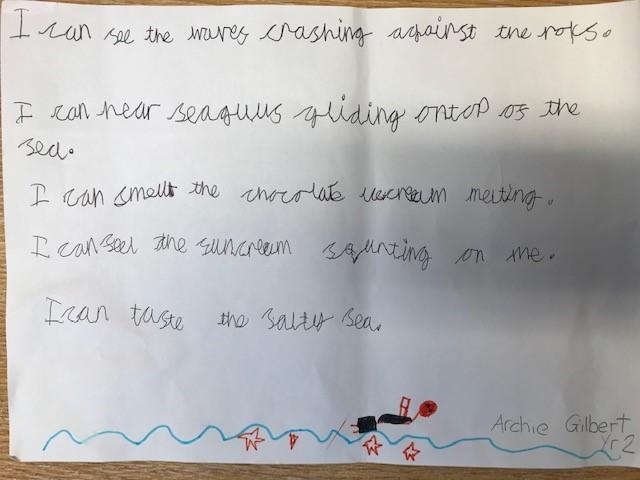 I can see the waves crashing against the roks.
I can hear seagulls gliding ontop of the
sea.
I can smell the chocolate icecream melting.
I can feel the suncream squrting on me.
I can taste the salty sea.
Archie Gilbert
Yr 2